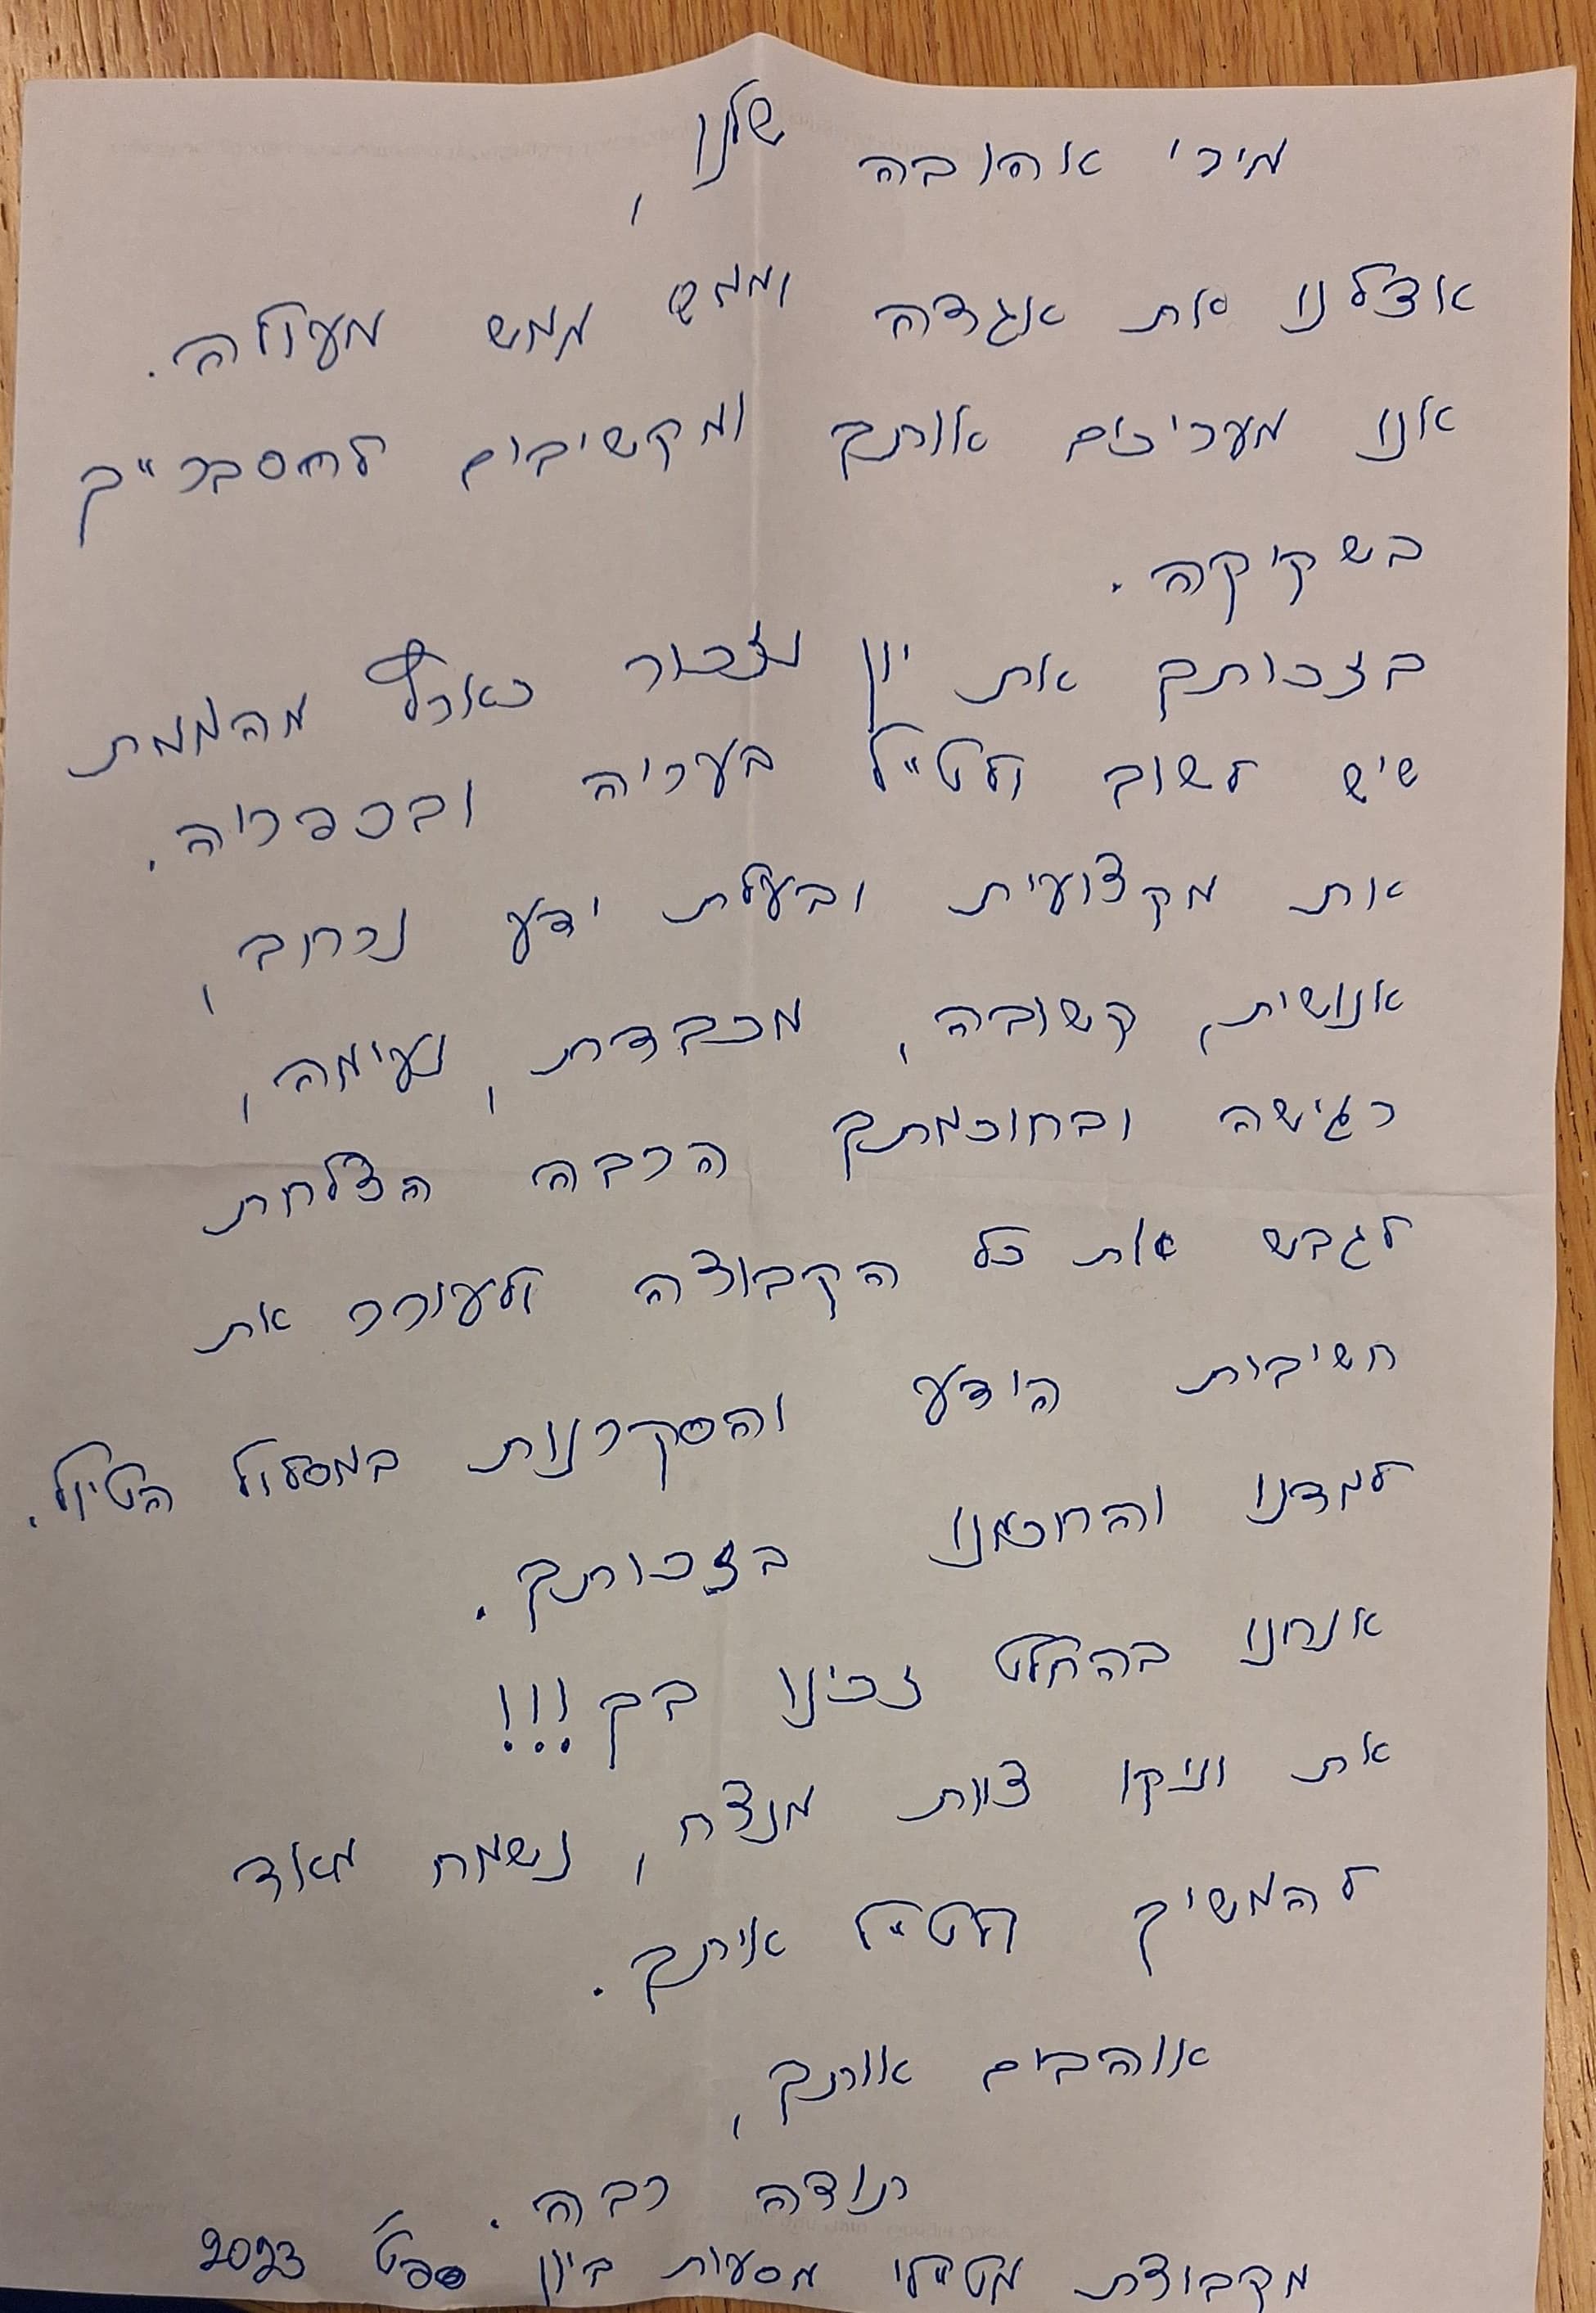 מירי אהובה שלנו,
אצלנו את אגדה וממש ממש מעולה.
אנו מעריכים אותך ומקשיבים להסברייך
בשקיקה.
בזכותך את יוון נזכור כארץ מהממת
שיש לשוב ולטייל בעריה ובכפריה.
את מקצועית ובעלת ידע נרחב,
אנושית, קשובה, מכבדת, נעימה,
רגישה ובחוכמתך הרבה הצלחת
לגבש את כל הקבוצה ולעורר את
חשיבות הידע והסקרנות במסלול הטיול.
למדנו והחכמנו בזכותך.
אנחנו בהחלט זכינו בך!!!
את וניקו צוות מנצח, נשמח מאוד
להמשיך לטייל איתך.
אוהבים אותך,
תודה רבה.
מקבוצת מטיילי מסעות ביוון ספט' 2023